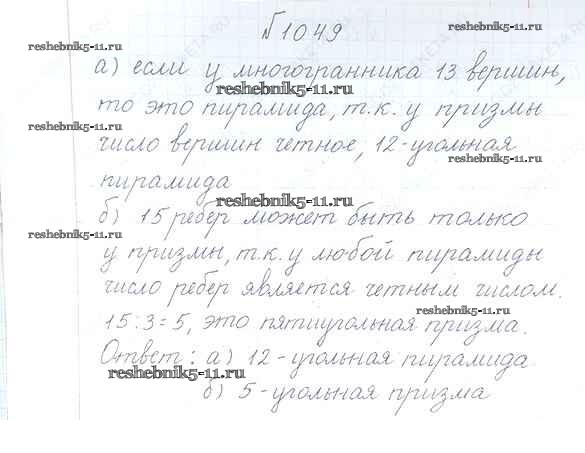 №1049
reshebnik5-11.ru
reshebnik5-11.ru
а) если у многогранника 13 вершин,
reshebnik5-11.ru
то это пирамида, т.к. у призмы
reshebnik5-11.ru
число вершин четное, 12-угольная
reshebnik5-11.ru
пирамида
reshebnik5-11.ru
б) 15 ребер может быть только
reshebnik5-11.ru
у призмы, т.к. у любой пирамиды
reshebnik5-11.ru
число ребер является четным числом.
15:3=5, это пятиугольная призма.
Ответ: а) 12-угольная пирамида
reshebnik5-11.ru
б) 5-угольная призма